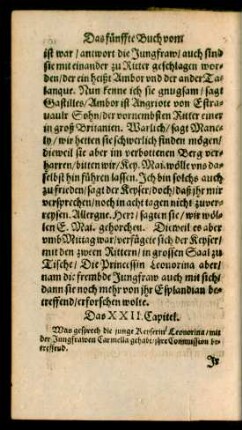 Das fünffte Buch vom
ist war / antwort die Jungfraw / auch sind
sie mit einander zu Ritter geschlagen wor-
den / der ein heißt Ambor vnd der ander Ta-
lanque. Nun kenne ich sie gnugsam / sagt
Gastilles / Ambor ist Angriote von Estra-
uaulx Sohn / der vornembsten Ritter einer
in groß Britanien. Warlich / sagt Mane-
ly / wir hetten sie schwerlich finden mögen /
dieweil sie aber im verbottenen Berg ver-
harren / bitten wir / Key. Mai. wölle vns da-
selbst hin führen lassen. Ich bin solchs auch
zu frieden / sagt der Keyser / doch / daß jhr mir
versprechen / noch in acht tagen nicht zuver-
reysen. Allergne. Herr / sagten sie / wir wöl-
len E. Mai. gehorchen. Dieweil es aber
vmb Mittag war / verfügete sich der Keyser /
mit den zween Rittern / in grossen Saal zu
Tische / Die Princessin Leonorina aber /
nam die frembde Jungfraw auch mit sich /
dann sie noch mehr von jhr Esplandian be-
treffend / erforschen wolte.
Das XXII. Capitel.
Was gesprech die junge Keyserin Leonorina / mit
der Jungfrawen Carmella gehabt / jhre Commission be-
treffend.
Jr